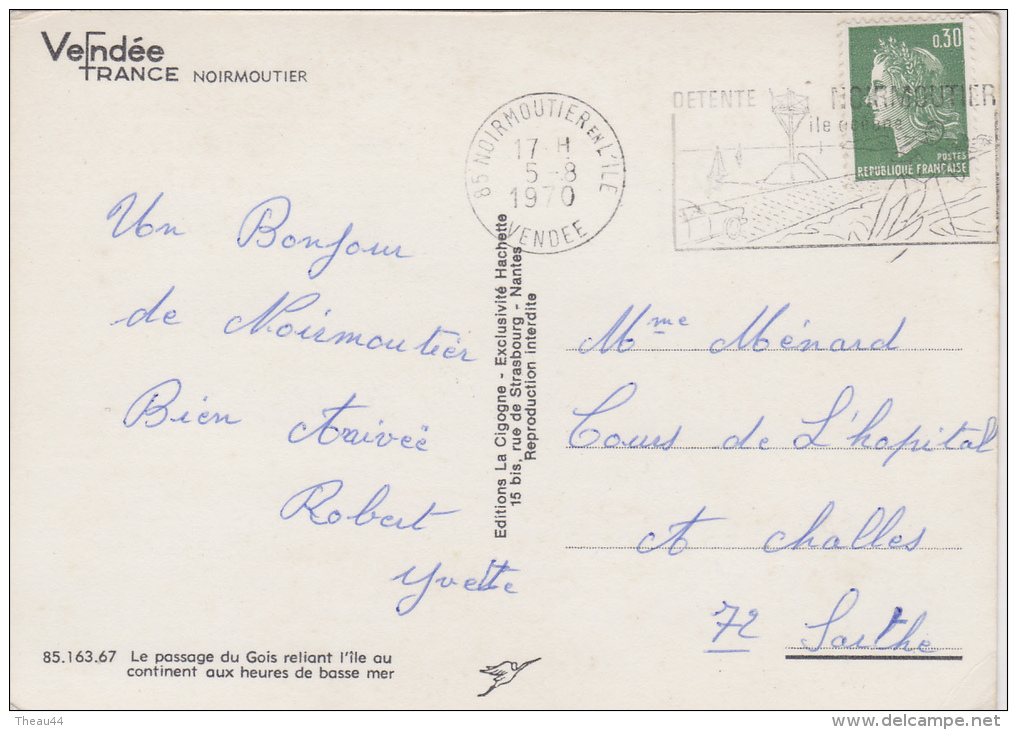 Vendée
FRANCE NOIRMOUTIER
0.30
POSTES
REPUBLIQUE FRANÇAISE
DETENTE NOIRMOUTIER
île océane
85-NOIRMOUTIER EN L'ILE
17 H
5-8
1970
VENDEE
Un Bonjour
de Noirmoutier
Bien Arrivée
Robert
Yvette
Editions La Cigogne - Exclusivité Hachette
15 bis, rue de Strasbourg - Nantes
Reproduction interdite
Mme Ménard
Cours de L'hopital
A challes
72 Sarthe
85.163.67 Le passage du Gois reliant l'île au
continent aux heures de basse mer
Theau44
www.delcampe.net